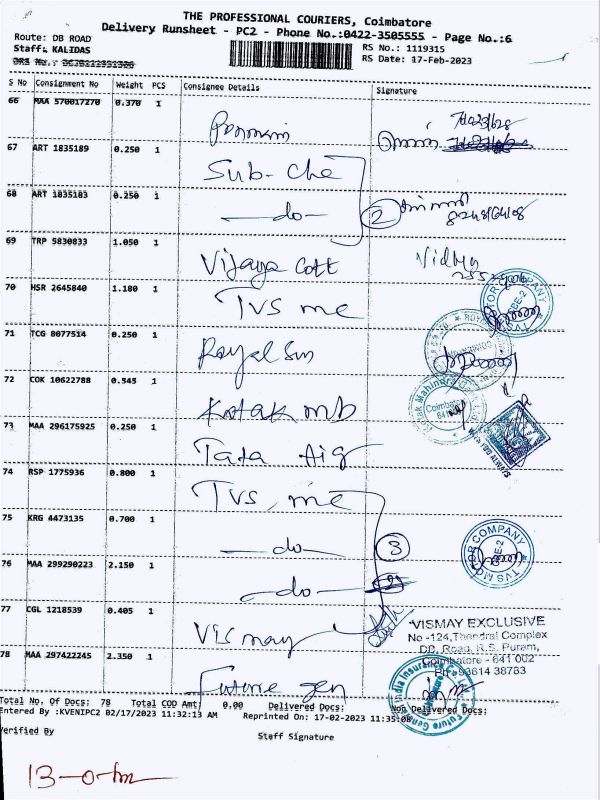 THE PROFESSIONAL COURIERS, Coimbatore
Delivery Runsheet - PC2 - Phone No.:0422-3505555 - Page No.:6
Route: DB ROAD
Staff: KALIDAS
RS No.: 1119315
RS Date: 17-Feb-2023
S No Consignment No Weight PCS Consignee Details Signature
66 MAA 570017270 0.370 1
67 ART 1835189 0.250 1 Sub-Che
68 ART 1835183 0.250 1 —do— 2
69 TRP 5830833 1.050 1 Vijaya Cott Vidhya
70 HSR 2645840 1.180 1 TVS mc
71 TCG 8077514 0.250 1 Royal Sun
72 COK 10622788 0.545 1 Kotak mb
Kotak Mahindra
Coimbatore
73 MAA 296175925 0.250 1 Tata Aig
74 RSP 1775936 0.800 1 TVS, mc
75 KRG 4473135 0.700 1 —do— 3
TVS MOTOR COMPANY
76 MAA 299290223 2.150 1 —do—
77 CGL 1218539 0.405 1 Vismay
VISMAY EXCLUSIVE
No -124,Thendral Complex
DB, Road, R.S. Puram,
Coimbatore - 641 002
78 MAA 297422245 2.350 1 Future gen
Total No. Of Docs: 78 Total COD Amt: 0.00 Delivered Docs: Non Delivered Docs:
Entered By :KVENIPC2 02/17/2023 11:32:13 AM Reprinted On: 17-02-2023 11:35:08
Verified By
Staff Signature